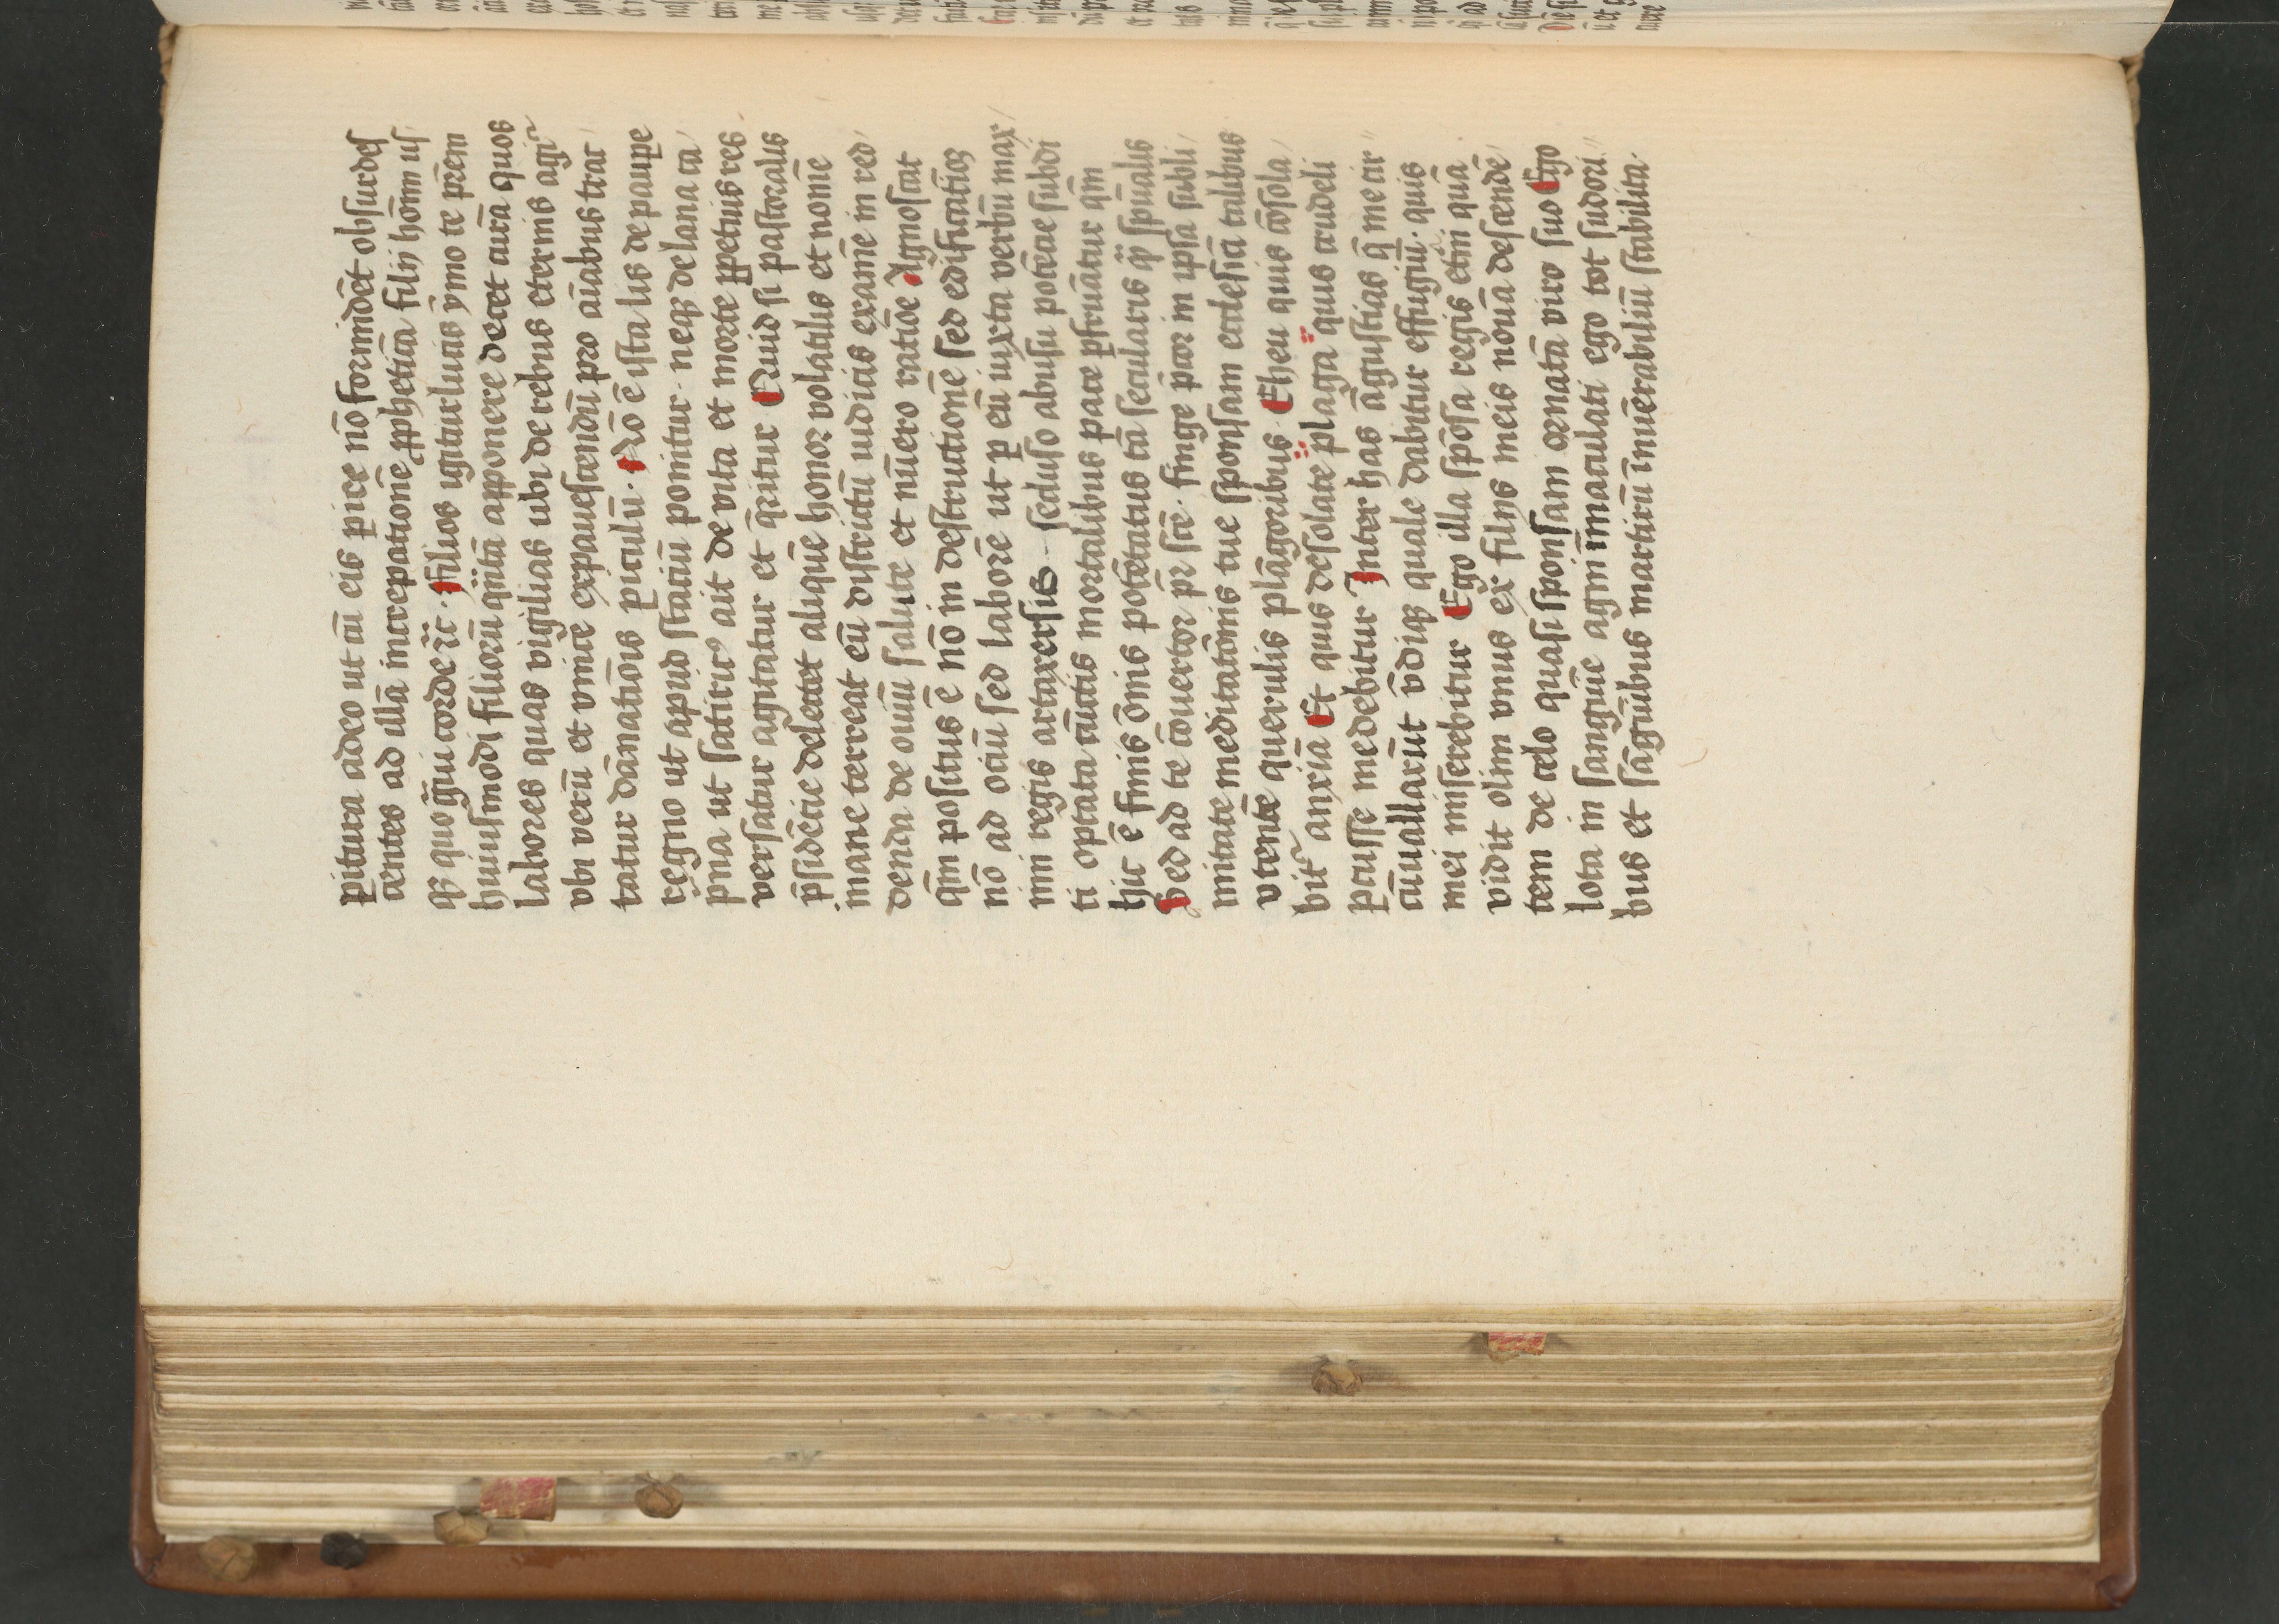 ꝑitura adeo ut cū eis ꝑire nō formidēt obsurdeſ
centes ad illā increpationē ꝓpheticā filij hōīm uſ
qȝ quo g̃ui corde r̃c · Filios igitur lucis ȳmo te p̄rem
huiusmodi filiorū q̃ntā apponere decet curā quos
labores quas vigilias ubi de rebus eternis agi͛
vbi verū et vnice expauescendū pro aīabus trac
tatur dānationis ꝑiculū · Nō ē ista lis de paupe
regno ut apud statiū ponitur · neqȝ de lana ca
prina ut satiricꝰ ait de vita et morte ꝑpetuis res
versatur agitatur et q̄ritur Quid si pastoralis
p̄sidētie delectet aliquē honor volatilis et nomē
inane terreat eū districtū iudicis examē in red
denda de oviū salute et nūero ratiōe Agnoscat
qm̄ positus ē nō in destructionē sed edificatiōꝫ
nō ad ociū sed laborē ut ꝑ eū iuxta verbū max
imi regis artaxersis – secluso abusu potētie subdi
ti optata cūctis mortalibus pace ꝑfruātur qm̄
hic ē finis ōnis potētatus tā secularis qȝ sp̄ualis
Sed ad te cōvertor p̄r sc̄e · finge p̄cor in ipsa subli
mitate meditatōnis tue sponsam ecclesiā talibus
vtentē querulis plāgoribus · Eheu quis cōsola
bit͛ anxiā Et quis desolate plaga quis crudeli
ꝑcusse medebitur Inter has āgustias q̄ me cir
cūuallarūt vndiqȝ quale dabitur effugiū · quis
mei miserebitur Ego illa spōsa regis etm̄ quā
vidit olim vnus ex filijs meis nouā descendē
tem de celo quasi sponsam ornatā viro suo Ego
lota in sanguīe agni immaculati ego tot sudori
bus et sāguībus martirū inūerabiliū stabilita